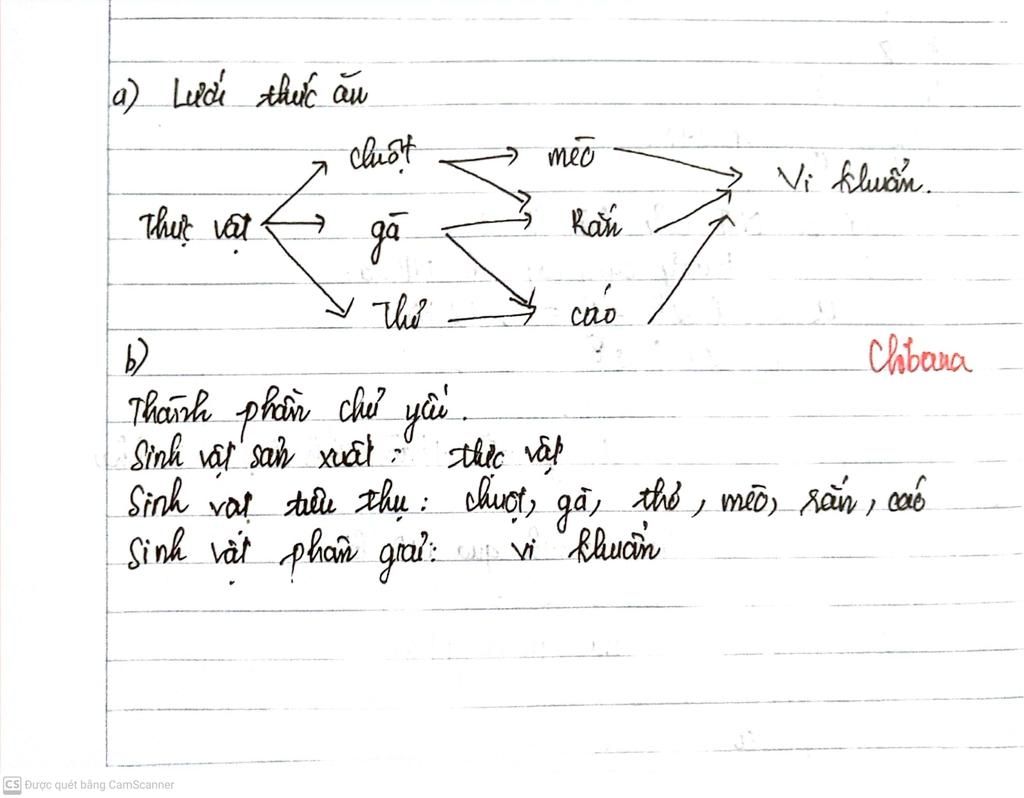 a) Lưới thức ăn
chuột mèo Vi khuẩn.
Thực vật gà Rắn
Thỏ cáo
b)
Chibana
Thành phần chủ yếu.
Sinh vật sản xuất: thực vật
Sinh vật tiêu thụ: chuột, gà, thỏ, mèo, rắn, cáo
Sinh vật phân giải: vi khuẩn
CS Được quét bằng CamScanner